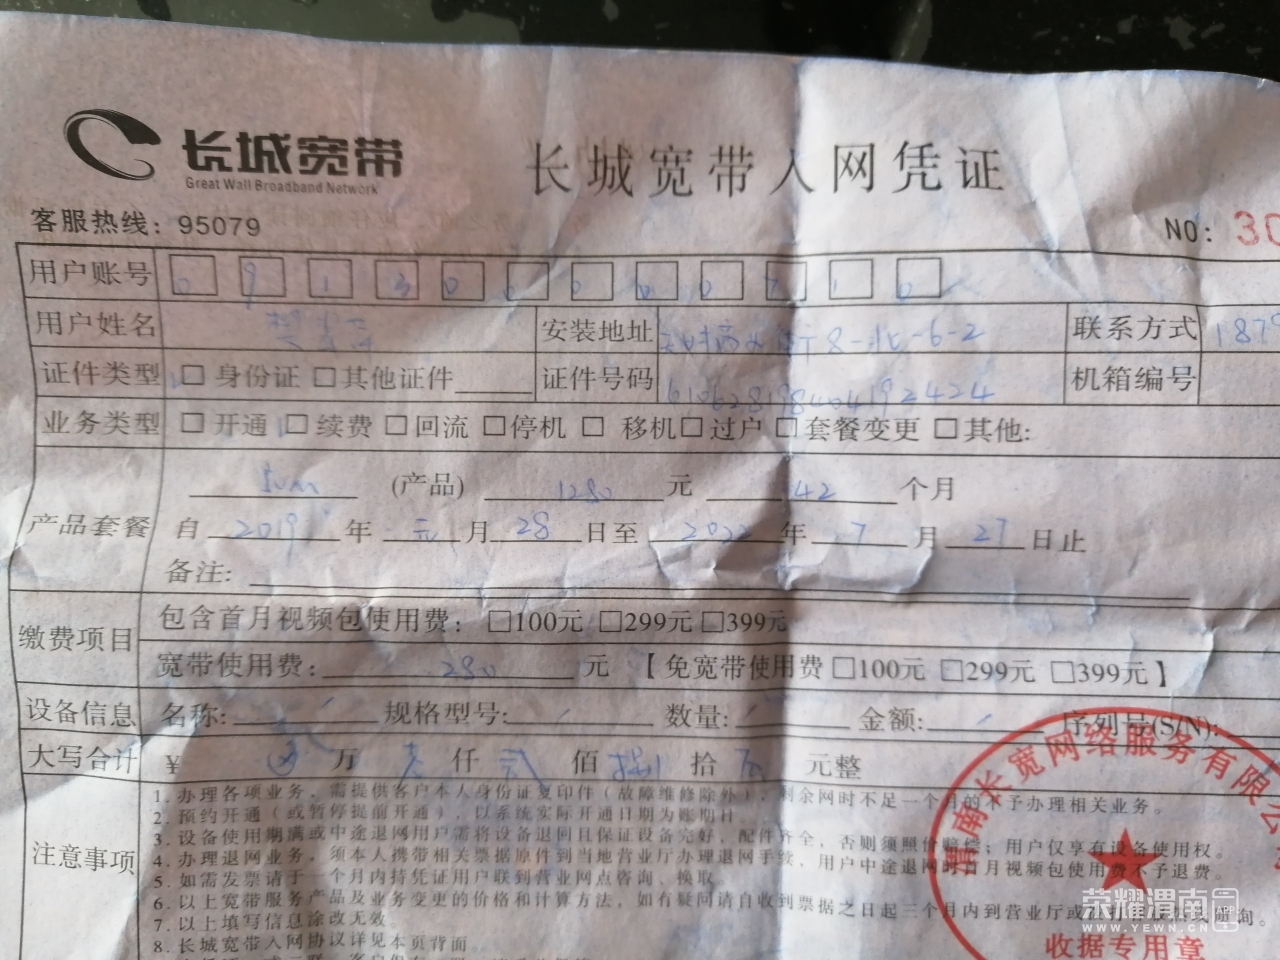 长城宽带
Great Wall Broadband Network
长城宽带入网凭证
客服热线：95079
NO：30
用户账号 0 9 1 3 0 0 0 0 0 7 1 0
用户姓名 安装地址 8-北-6-2 联系方式 187
证件类型 □ 身份证 □其他证件 证件号码 610628198404192424 机箱编号
业务类型 □ 开通 □ 续费 □ 回流 □停机 □ 移机□过户 □套餐变更 □其他:
产品套餐
(产品) 1280 元 42 个月
自 2019 年 元 月 28 日至 2022 年 7 月 27 日止
备注:
缴费项目
包含首月视频包使用费：□100元 □299元 □399元
宽带使用费： 280 元 【 免宽带使用费 □100元 □299元 □399元 】
设备信息 名称: / 规格型号: / 数量: / 金额: / 序列号(S/N):
大写合计 ¥ 万 壹 仟 贰 佰 捌 拾 元整
注意事项
1. 办理各项业务，需提供客户本人身份证复印件（故障维修除外），剩余网时不足一个月的不予办理相关业务。
2. 预约开通（或暂停提前开通），以系统实际开通日期为账期日。
3. 设备使用期满或中途退网用户需将设备退回且保证设备完好，配件齐全，否则须照价赔偿；用户仅享有设备使用权。
4. 办理退网业务，须本人携带相关票据原件到当地营业厅办理退网手续，用户中途退网时首月视频包使用费不予退费。
5. 如需发票请于一个月内持凭证用户联到营业网点咨询、换取。
6. 以上宽带服务产品及业务变更的价格和计算方法，如有疑问请自收到票据之日起三个月内到营业厅或 询。
7. 以上填写信息涂改无效。
8. 长城宽带入网协议详见本页背面。
渭南长宽网络服务有限公
收据专用章
荣耀渭南 APP
WWW.YEWN.CN